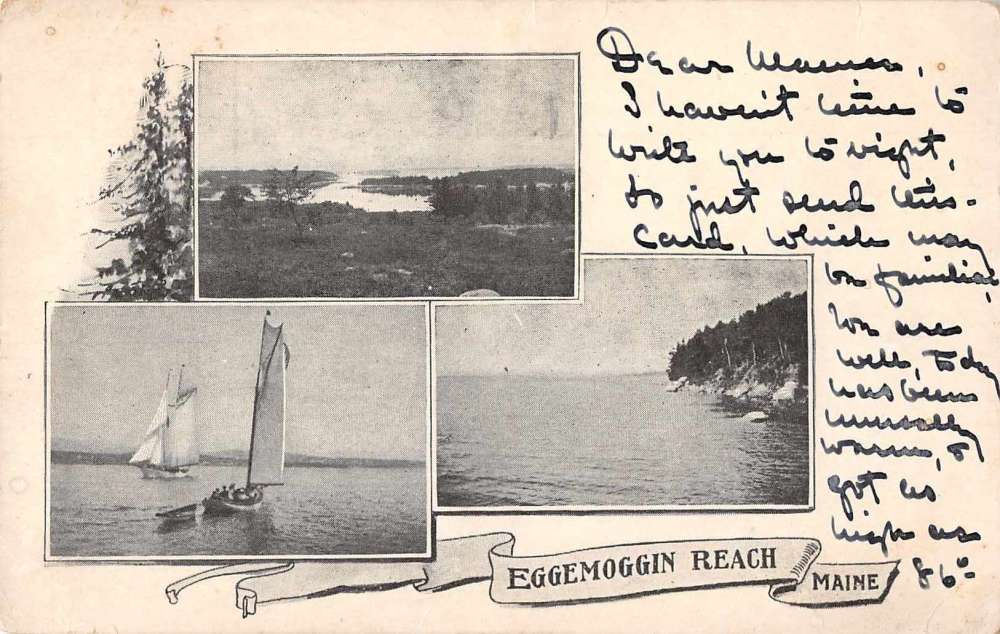 Dear Mamma,
I haven't time to
write you to night,
so just send this
Card, which may
be familiar,
We are
well, today
has been
unusually
warm, &
got as
high as
86°
EGGEMOGGIN REACH
MAINE